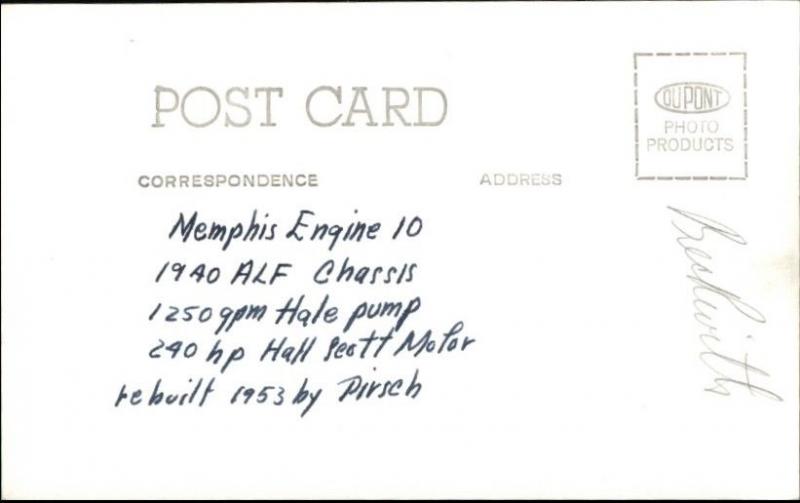 POST CARD
DUPONT
PHOTO
PRODUCTS
CORRESPONDENCE
ADDRESS
Memphis Engine 10
1940 ALF Chassis
1250gpm Hale pump
240 hp Hall Scott Motor
rebuilt 1953 by Pirsch
Beckwith